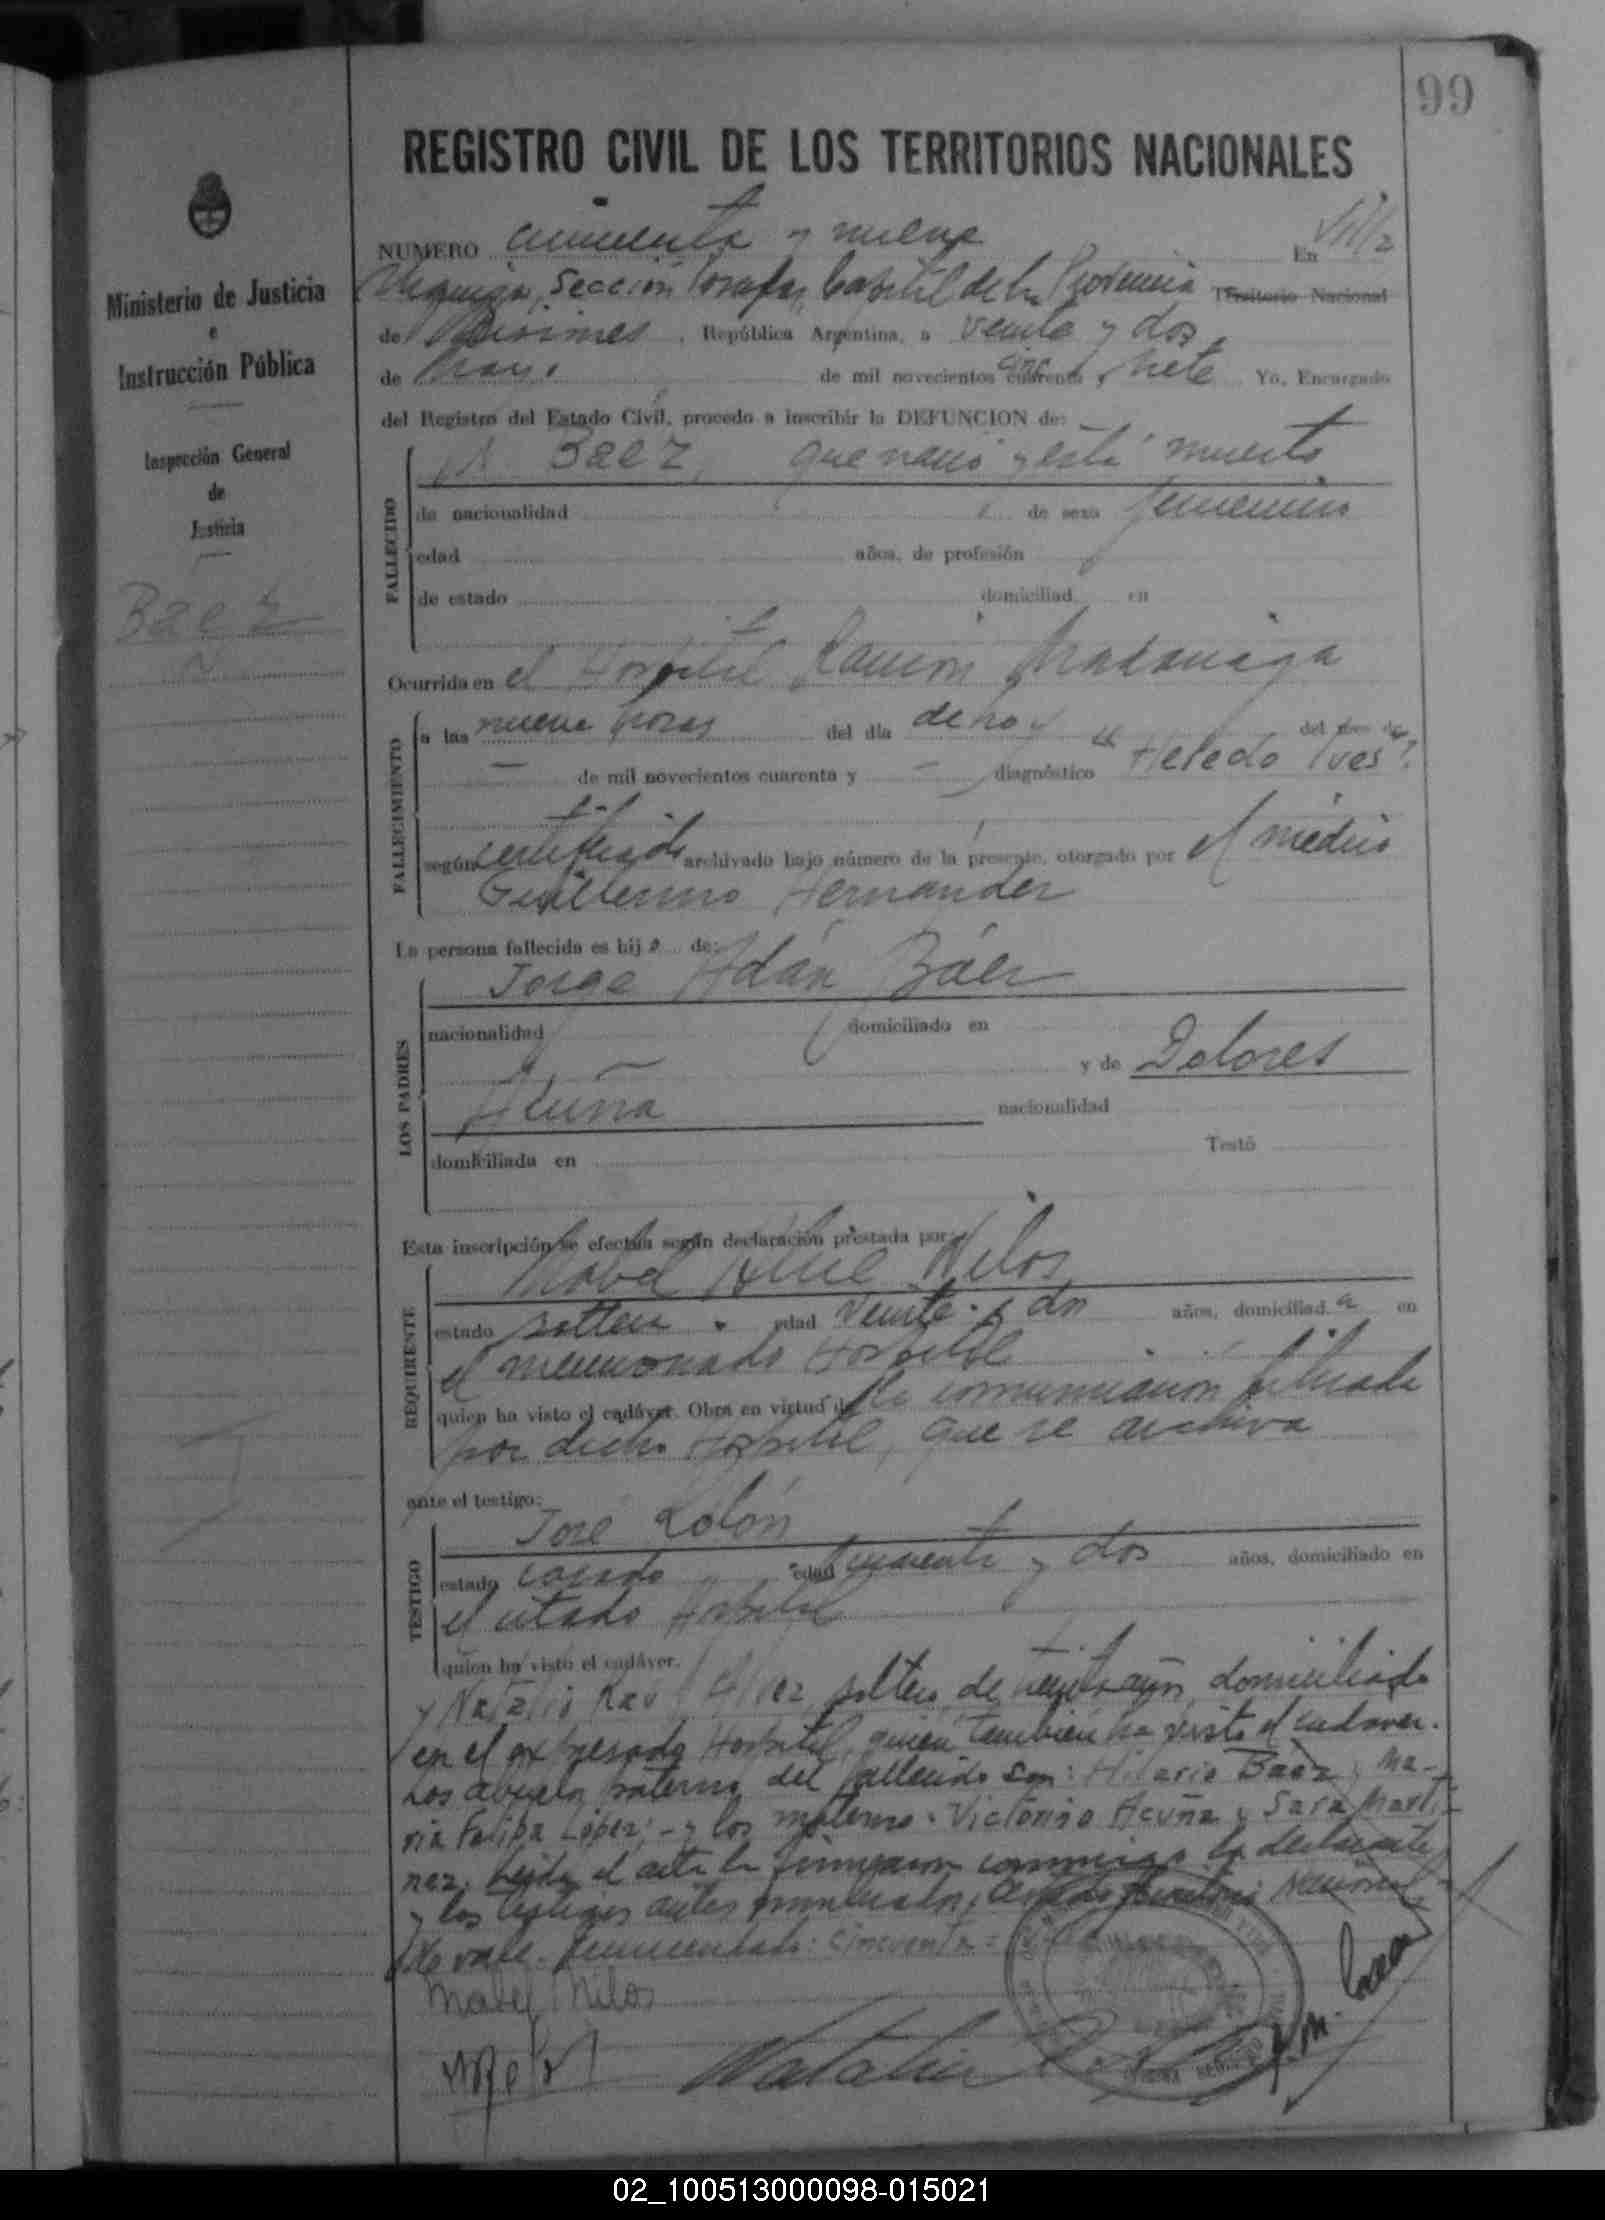 99
REGISTRO CIVIL DE LOS TERRITORIOS NACIONALES
Ministerio de Justicia
e
Instrucción Pública
Inspección General
de
Justicia
Baez
NUMERO cincuenta y nueve En Villa
Urquiza, Sección Posadas, Capital de la Provincia Territorio Nacional
de Misiones, República Argentina, a veinte y dos
de Mayo de mil novecientos cuarenta y siete Yo, Encargado
del Registro del Estado Civil, procedo a inscribir la DEFUNCION de:
FALLECIDO
N Baez, que nació y está muerto
de nacionalidad de sexo femenino
edad años, de profesión
de estado domiciliad en
Ocurrida en el Hospital Ramón Madariaga
FALLECIMIENTO
a las nueve horas del día de hoy del mes de
— de mil novecientos cuarenta y — diagnóstico "Heredo lues".
según certificado archivado bajo número de la presente, otorgado por el médico
Guillermo Hernandez
La persona fallecida es hij o de:
LOS PADRES
Jorge Adán Báez
nacionalidad domiciliado en
y de Dolores
Acuña nacionalidad
domiciliada en Testó
Esta inscripción se efectúa según declaración prestada por:
REQUIRENTE
Mabel Nilos
estado soltera edad veinte y dos años, domiciliad a en
el mencionado Hospital
quien ha visto el cadáver. Obra en virtud de la comunicación
por dicho Hospital, que se archiva
ante el testigo:
TESTIGO
José Lolón
estado casado edad cuarenta y dos años, domiciliado en
el citado Hospital
quien ha visto el cadáver.
y Natalio soltero, de años, domiciliado
en el expresado Hospital, quien también ha visto el cadaver.
Los abuelos paternos del fallecido son: Hilario Báez y Ma-
ria Felipa López; - y los maternos: Victorino Acuña y Sara Marti-
nez. Leida el acta la firmaron conmigo la declarante
y los testigos antes nombrados. Nacional
No vale. Enmendado: cincuenta =
Mabel Nilos
Natalio
02_100513000098-015021